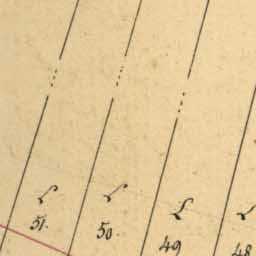 L L L L
51. 50. 49 48